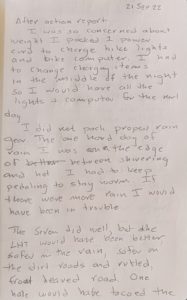 21 Sep 22
After action report
I was so concerned about
weight I packed 1 power
cord to charge bike lights
and bike computer. I had
to change charging items
in the middle of the night
so I would have all the
lights & computer for the next
day.
I did not pack proper rain
gear. The one hard day of
rain I was on the edge
of between shivering
and hot I had to keep
pedaling to stay warm. If
there were more rain I would
have been in trouble
The Seven did well, but the
LHT would have been better
safer in the rain, softer on
the dirt roads and rutted
frost heaved road. One
hole would have tacoed the